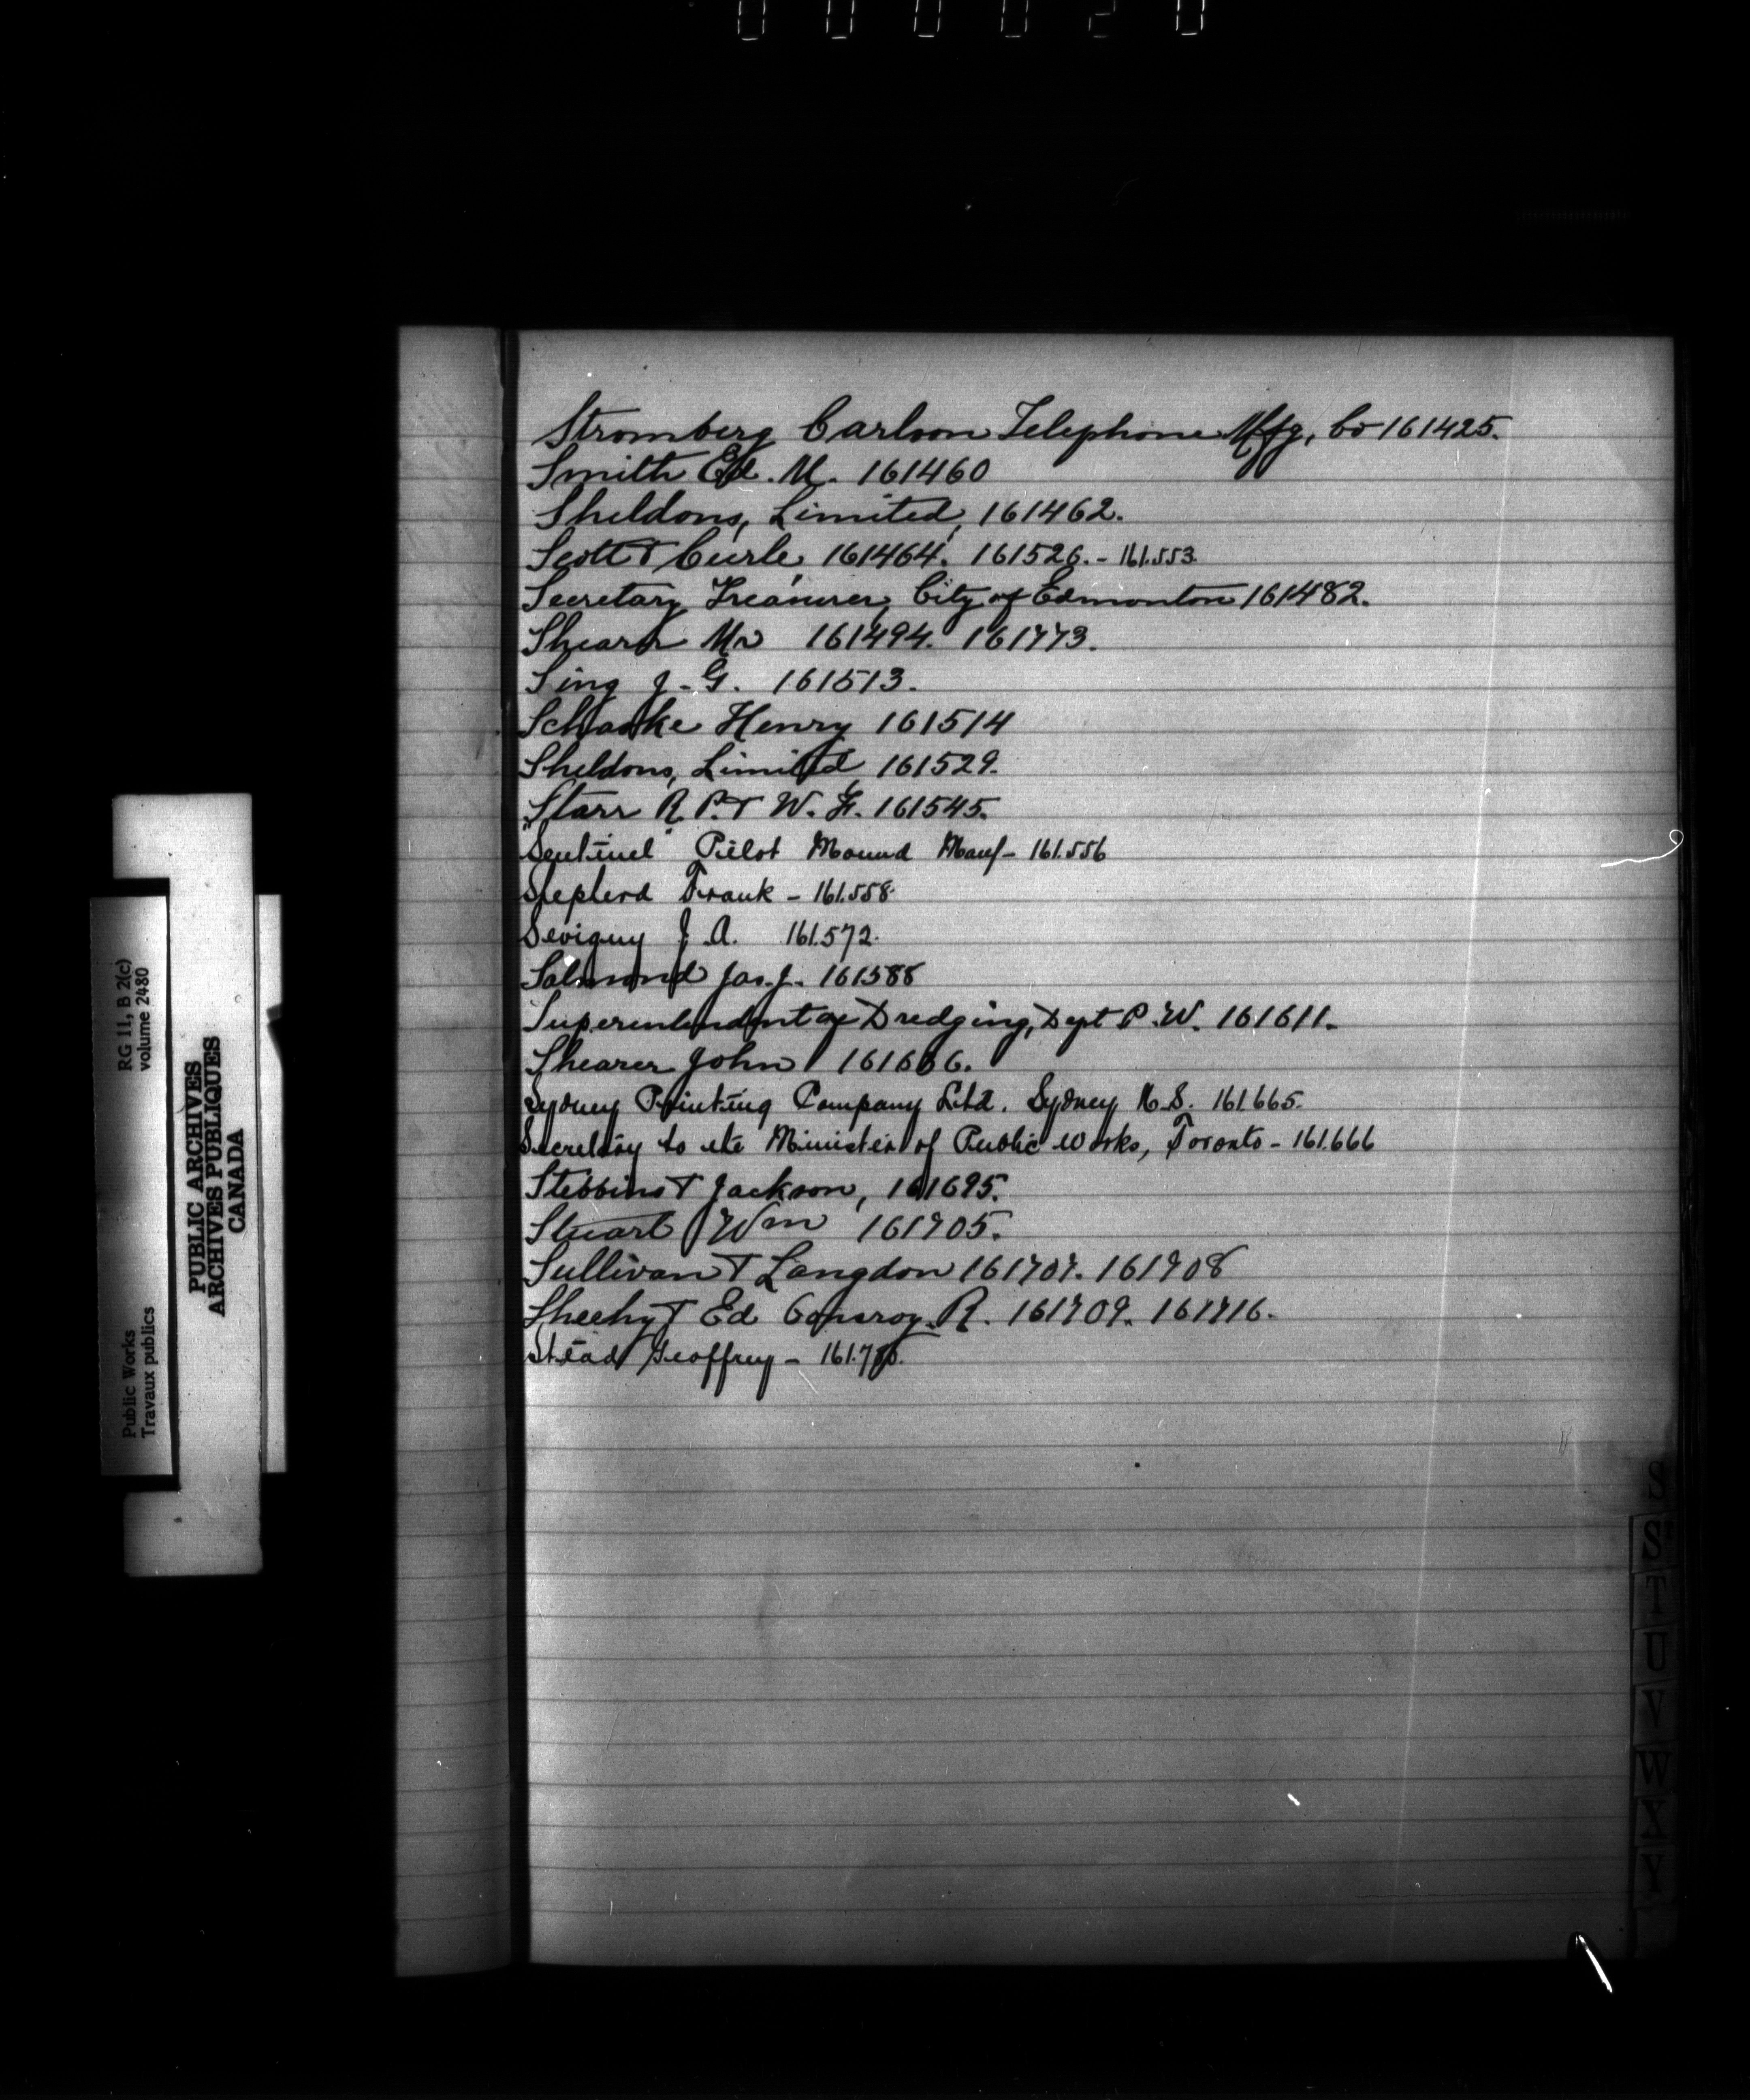 Stromberg Carlson Telephone Mfg, Co 161425.
Smith Ed. M. 161460
Sheldons, Limited, 161462.
Scott & Curle, 161464. 161526. - 161.553.
Secretary Treasurer, City of Edmonton 161482.
Shearer Mr 161494. 161773.
Sing J. G. 161513.
Schaake Henry 161514
Sheldons, Limited, 161529.
Starr R. P. & W. F. 161545.
"Sentinel" Pilot Mound Man - 161.556
Shepherd Frank - 161.558.
Sevigny J. A. 161.572.
Salmond Jas. J. 161588
Superintendent of Dredging, Dept P. W. 161611.
Shearer John 161636.
Sydney Printing Company Ltd. Sydney N.S. 161.665.
Secretary to the Minister of Public Works, Toronto - 161.666
Stebbins & Jackson, 161695.
Stuart Wm 161705.
Sullivan & Langdon 161707. 161708
Sheehy & Ed Conroy. R. 161709. 161716.
Stead Geoffrey -
S
S
T
U
V
W
X
Y
RG 11, B 2(c)
volume 2480
PUBLIC ARCHIVES
ARCHIVES PUBLIQUES
CANADA
Public Works
Travaux publics